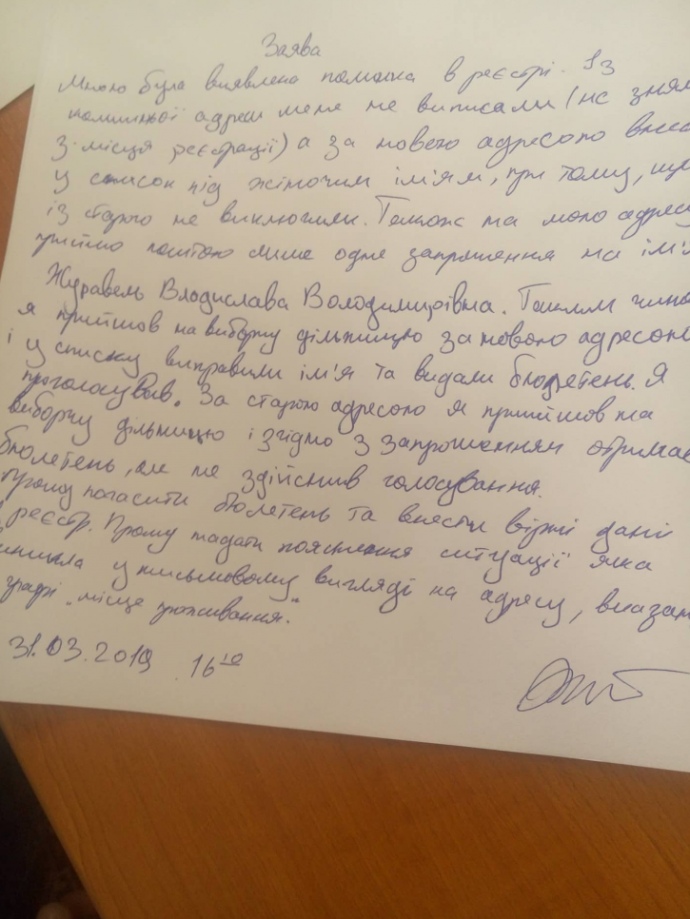 Заява
Мною була виявлена помилка в реєстрі. Із
колишньої адреси мене не виписали (не зням
з місця реєстрації) а за новою адресою внес
у список під жіночим ім'ям, при тому, що
із старого не виключили. Також на мою адресу
прийшло поштою лише одне запрошення на ім'я
Журавель Владислава Володимирівна. Таким чино
я прийшов на виборчу дільницю за новою адресою
і у списку виправили ім'я та видали бюлетень. Я
проголосував. За старою адресою я прийшов на
виборчу дільницю і згідно з запрошенням отримав
бюлетень, але не здійснив голосування.
Прошу погасити бюлетень та внести вірні дані
в реєстр. Прошу надати пояснення ситуації яка
виникла у письмовому вигляді на адресу, вказан
графі "місце проживання."
31.03.2019 16